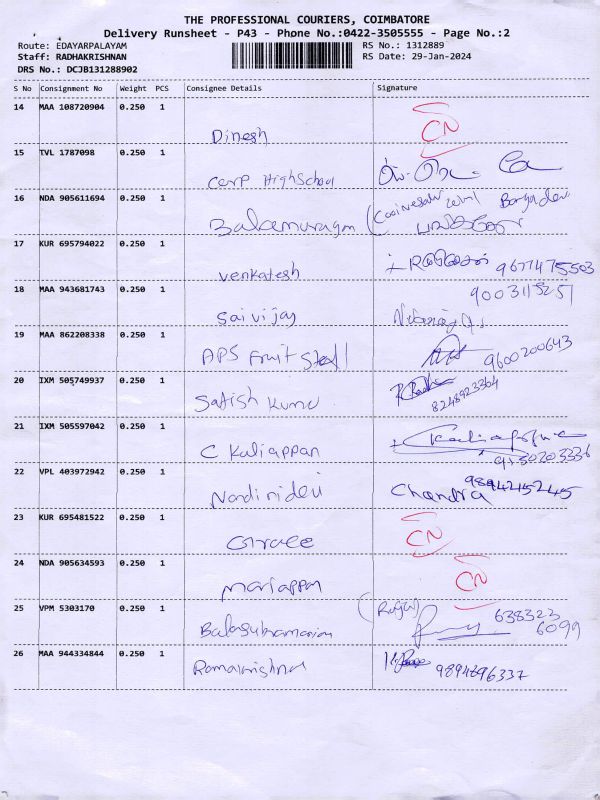 THE PROFESSIONAL COURIERS, COIMBATORE
Delivery Runsheet - P43 - Phone No.:0422-3505555 - Page No.:2
Route: EDAYARPALAYAM RS No.: 1312889
Staff: RADHAKRISHNAN RS Date: 29-Jan-2024
DRS No.: DCJB131288902
S No Consignment No Weight PCS Consignee Details Signature
14 MAA 108720904 0.250 1
Dinesh CN
15 TVL 1787098 0.250 1
CERP HighSchool
16 NDA 905611694 0.250 1
Balamurugan
17 KUR 695794022 0.250 1
venkatesh 9677475503
18 MAA 943681743 0.250 1 9003115251
Saivijay
19 MAA 862208338 0.250 1
APS Fruit Stall 9600200643
20 IXM 505749937 0.250 1
Satish Kumar 8248923364
21 IXM 505597042 0.250 1
C Kaliappan Kaliappan
22 VPL 403972942 0.250 1
Nandinidevi Chandra 98942152445
23 KUR 695481522 0.250 1
Grace CN
24 NDA 905634593 0.250 1
Mariappan CN
25 VPM 5303170 0.250 1
Balasubramanian 638323
6099
26 MAA 944334844 0.250 1
Ramakrishna 9894696337